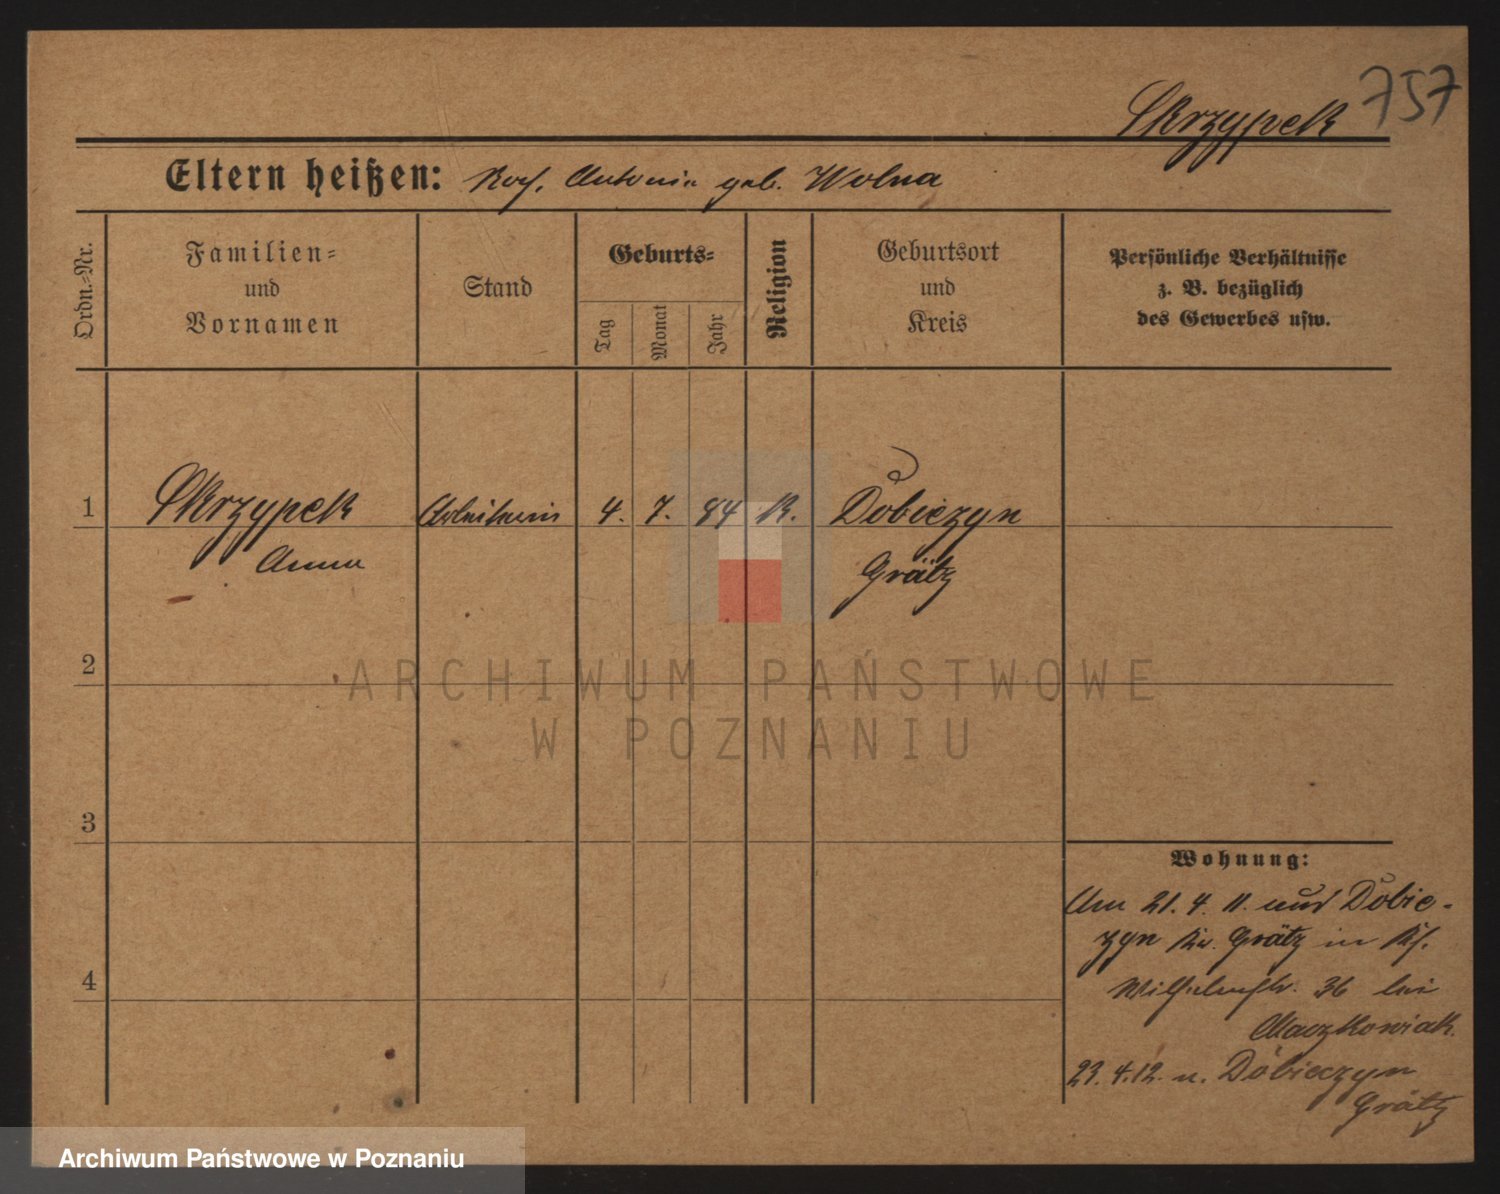 Skrzypek 757
Eltern heißen: Antonie geb. Wolna
Ordn.-Nr.
Familien-
und
Vornamen
Stand
Geburts-
Tag
Monat
Jahr
Religion
Geburtsort
und
Kreis
Persönliche Verhältnisse
z. B. bezüglich
des Gewerbes usw.
1 Skrzypek Arbeiterin 4. 7. 84 K. Dobieżyn
Anna Grätz
2
3
4
Wohnung:
Am 21. 4. 11. aus Dobie-
zyn Kr. Grätz in
Wilhelmstr. 36 bei
Maczkowiak.
23. 4. 12. n. Dobieczyn
Grätz
ARCHIWUM PAŃSTWOWE
W POZNANIU
Archiwum Państwowe w Poznaniu